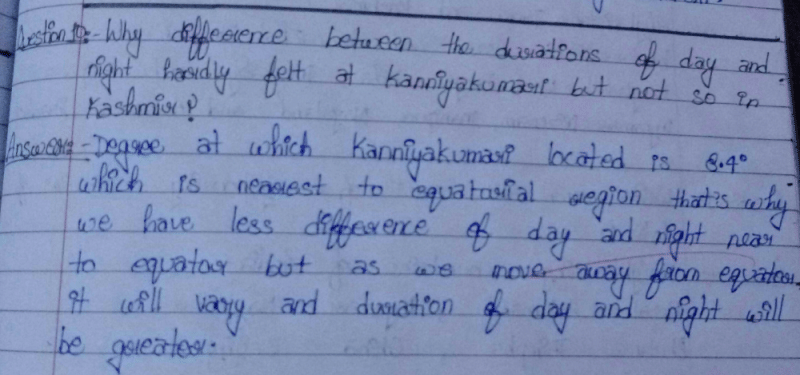 Question 19:- Why difference between the durations of day and
night hardly felt at Kanniyakumari but not so in
Kashmir?
Answer:- Degree at which Kanniyakumari located is 8.4°
which is nearest to equatorial region that's why
we have less difference of day and night near
to equator but as we move away from equator
it will vary and duration of day and night will
be greater.